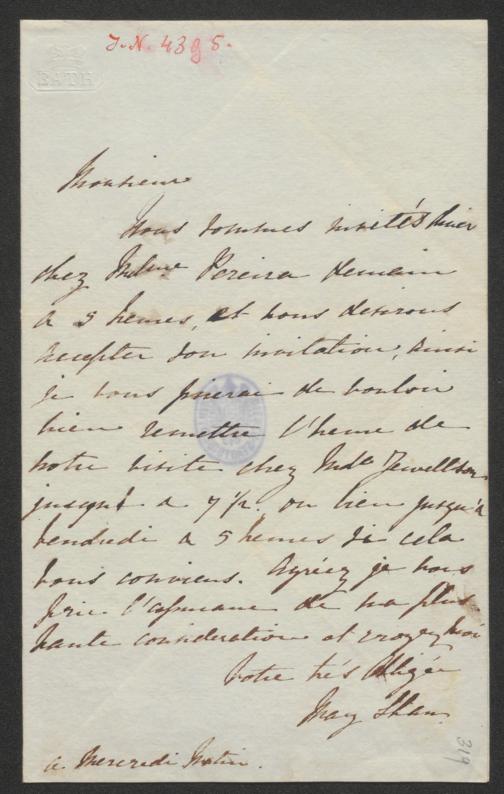 J.N. 4395.
BATH
Monsieur
Nous sommes invités hier
chez Mdme Pereira demain
a 5 heures, et nous desirons
accepter son invitation, ainsi
je vous prierai de vouloir
bien remettre l'heure de
notre visite chez Mde
jusqu'à 7 1/2. ou bien jusqu'à
vendredi a 5 heures si cela
vous conviens. Agréez je vous
prie l'assurance de ma plus
haute consideration et croyez moi
votre très obligée
Mary Shaw
a. Mercredi Matin.
319